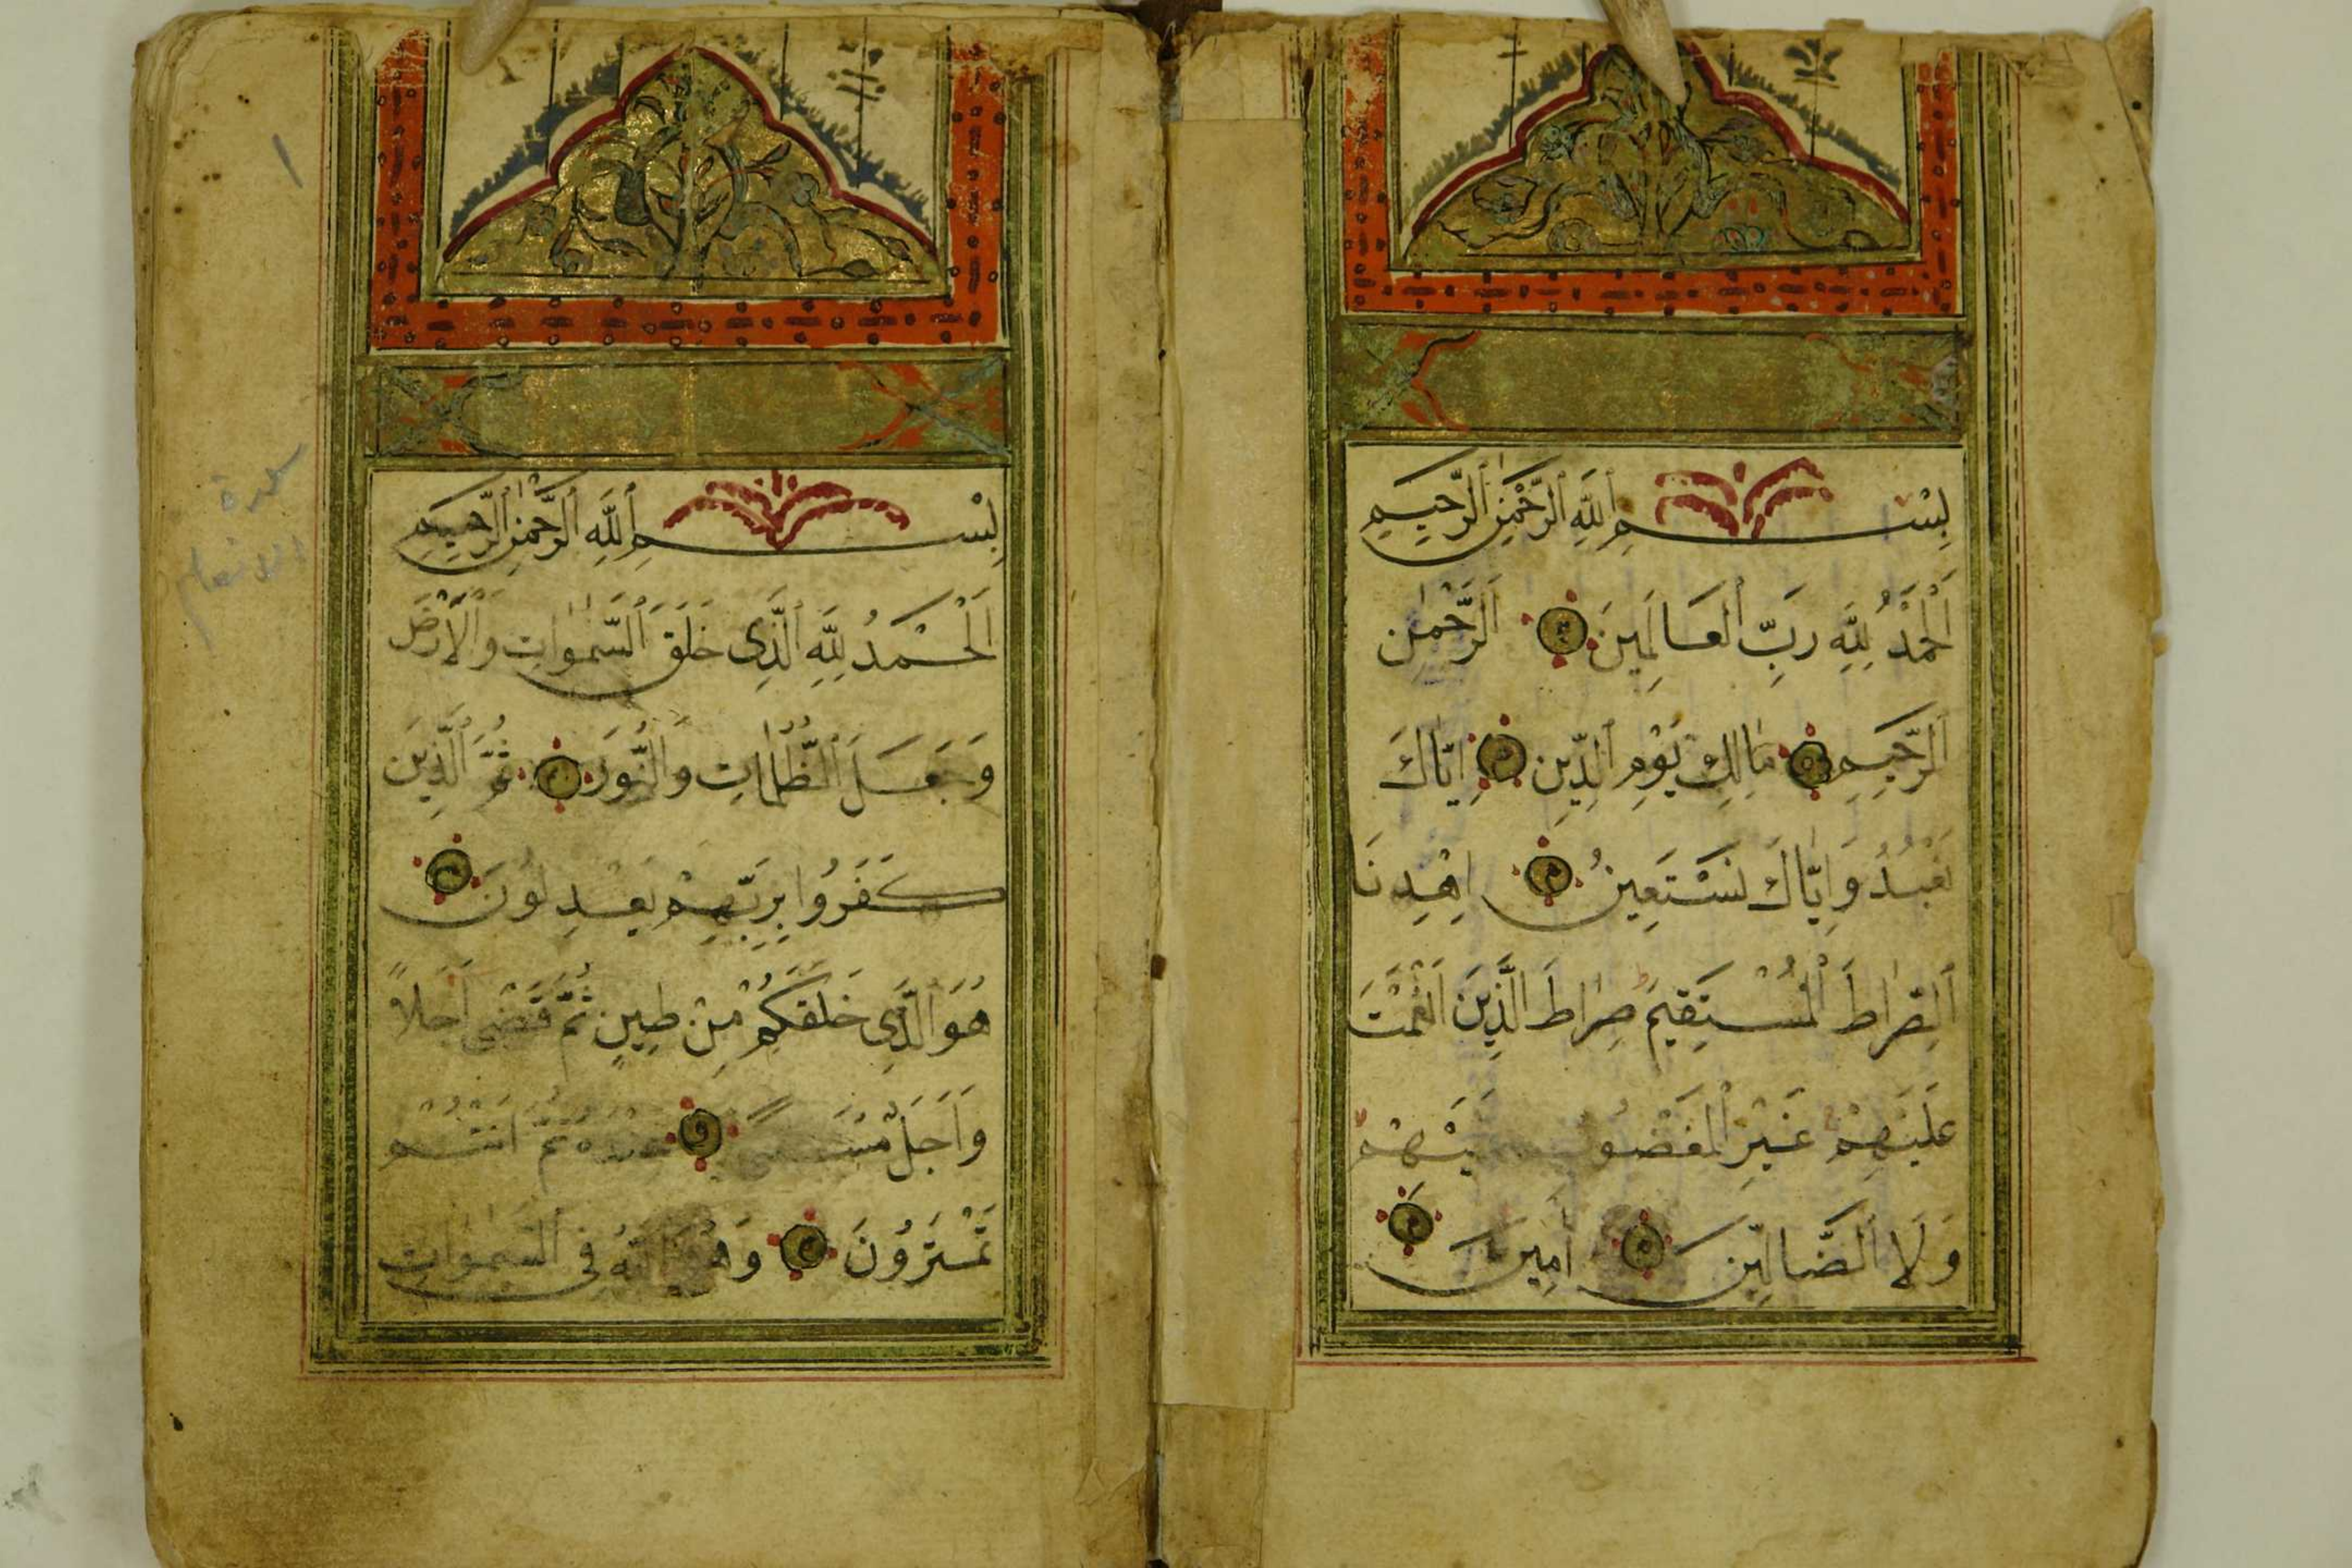 بِسْمِ ٱللَّهِ ٱلرَّحْمٰنِ ٱلرَّحِيمِ
اَلْحَمْدُ لِلَّهِ رَبِّ ٱلْعَالَمِينَ اَلرَّحْمٰنِ
ٱلرَّحِيمِ مَالِكِ يَوْمِ ٱلدِّينِ اِيَّاكَ
نَعْبُدُ وَاِيَّاكَ نَسْتَعِينُ اِهْدِنَا
ٱلصِّرَاطَ ٱلْمُسْتَقِيمَ صِرَاطَ الَّذِينَ اَنْعَمْتَ
عَلَيْهِمْ غَيْرِ ٱلْمَغْضُوبِ
وَلَا ٱلضَّالِّينَ اٰمِينَ
بِسْمِ ٱللَّهِ ٱلرَّحْمٰنِ ٱلرَّحِيمِ
اَلْحَمْدُ لِلَّهِ ٱلَّذِى خَلَقَ ٱلسَّمٰوَاتِ وَالْاَرْضَ
وَجَعَلَ ٱلظُّلُمَاتِ وَالنُّورَ ثُمَّ الَّذِينَ
كَفَرُوا بِرَبِّهِمْ يَعْدِلُونَ
هُوَ الَّذِى خَلَقَكُمْ مِنْ طِينٍ ثُمَّ قَضٰى اَجَلًا
وَاَجَلٌ مُسَمًّى عِنْدَهُ ثُمَّ اَنْتُمْ
تَمْتَرُونَ وَهُوَ ٱللَّهُ فِى ٱلسَّمٰوَاتِ
١
سورة
الانعام